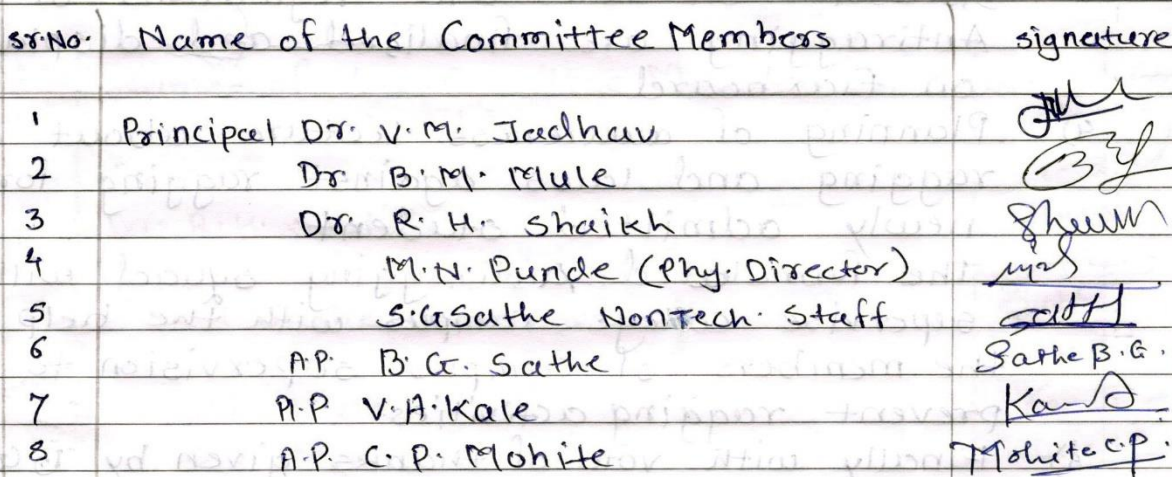 Sr.No. Name of the Committee Members signature
1 Principal Dr. V.M. Jadhav
2 Dr. B.M. Mule
3 Dr. R.H. Shaikh
4 M.N. Punde (Phy. Director)
5 S.G Sathe NonTech. Staff
6 A.P. B.G. Sathe Sathe B.G.
7 A.P V.A. Kale
8 A.P. C.P. Mohite Mohite C.P.